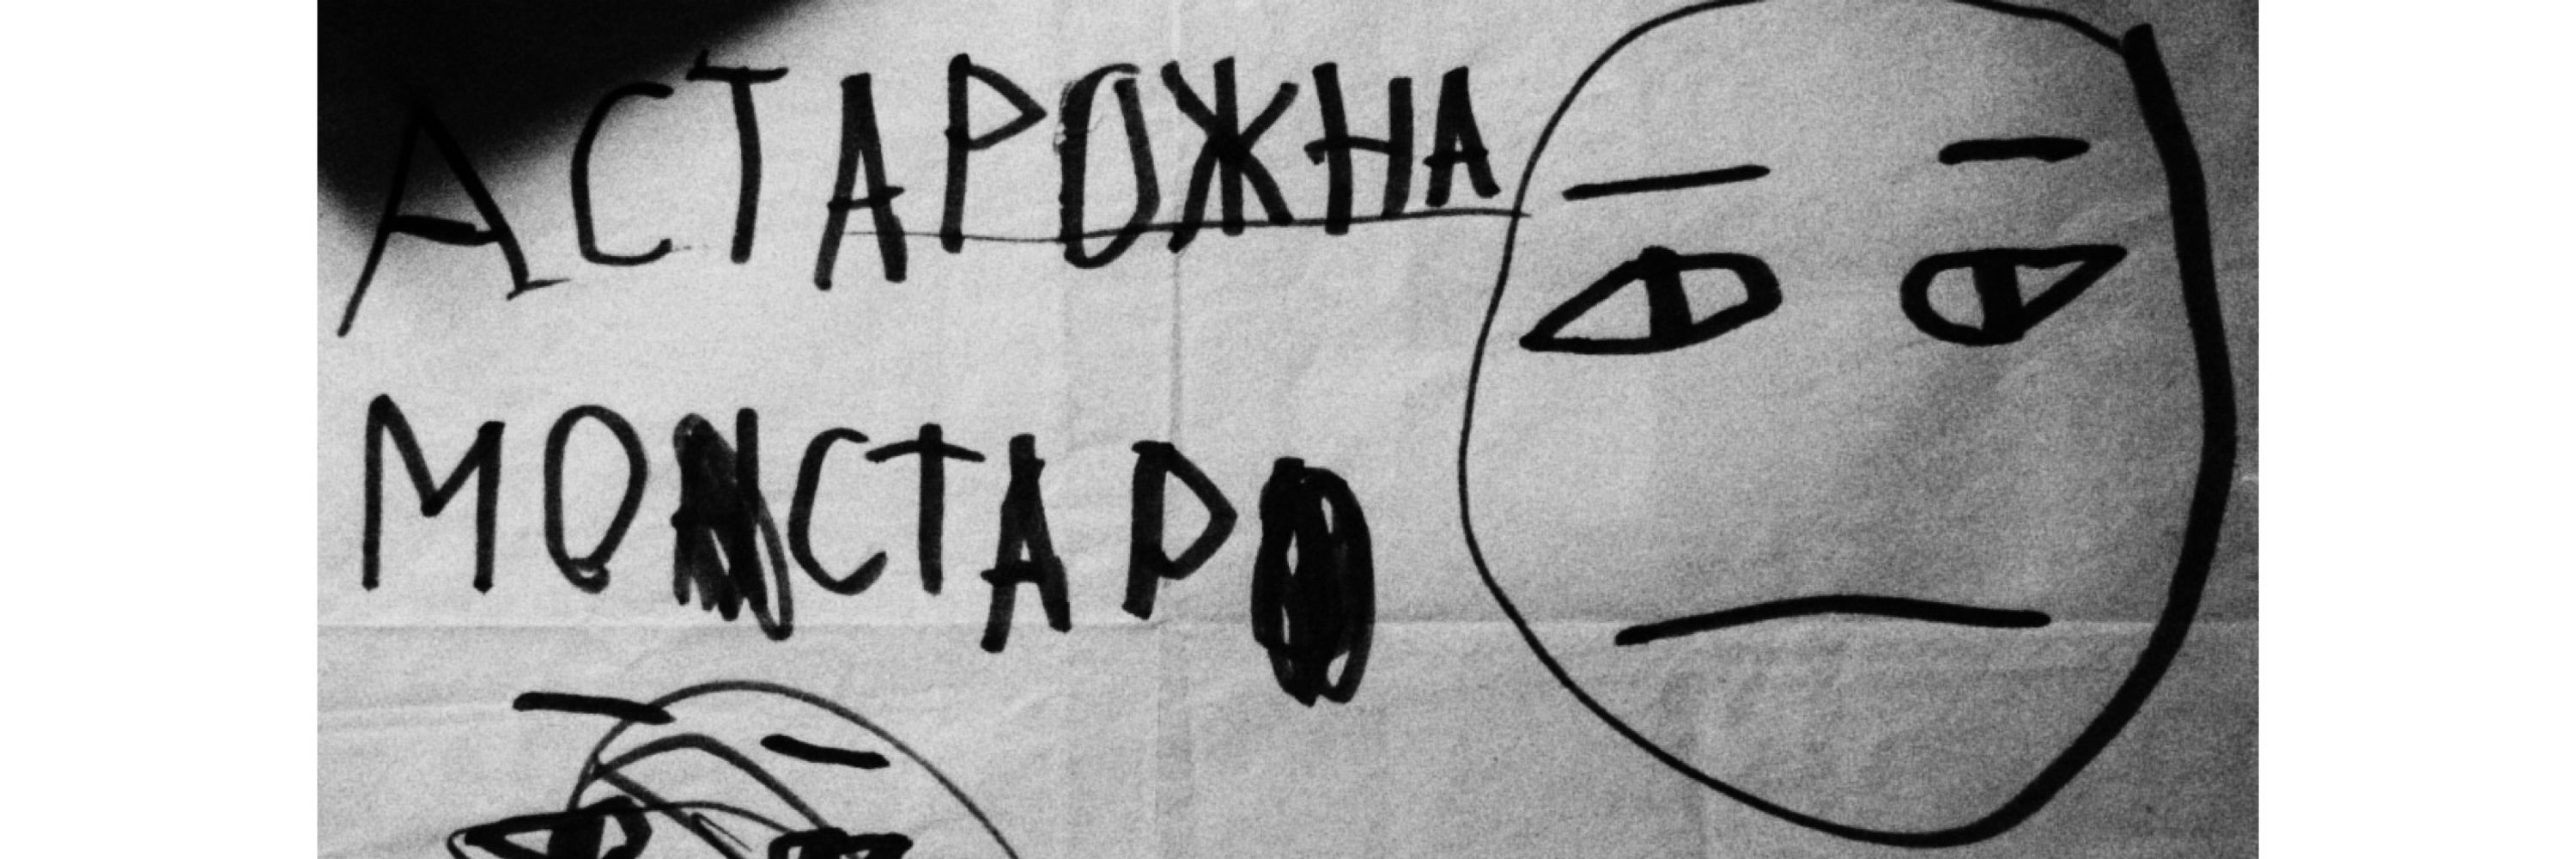 АСТАРОЖНА
МОНСТАР